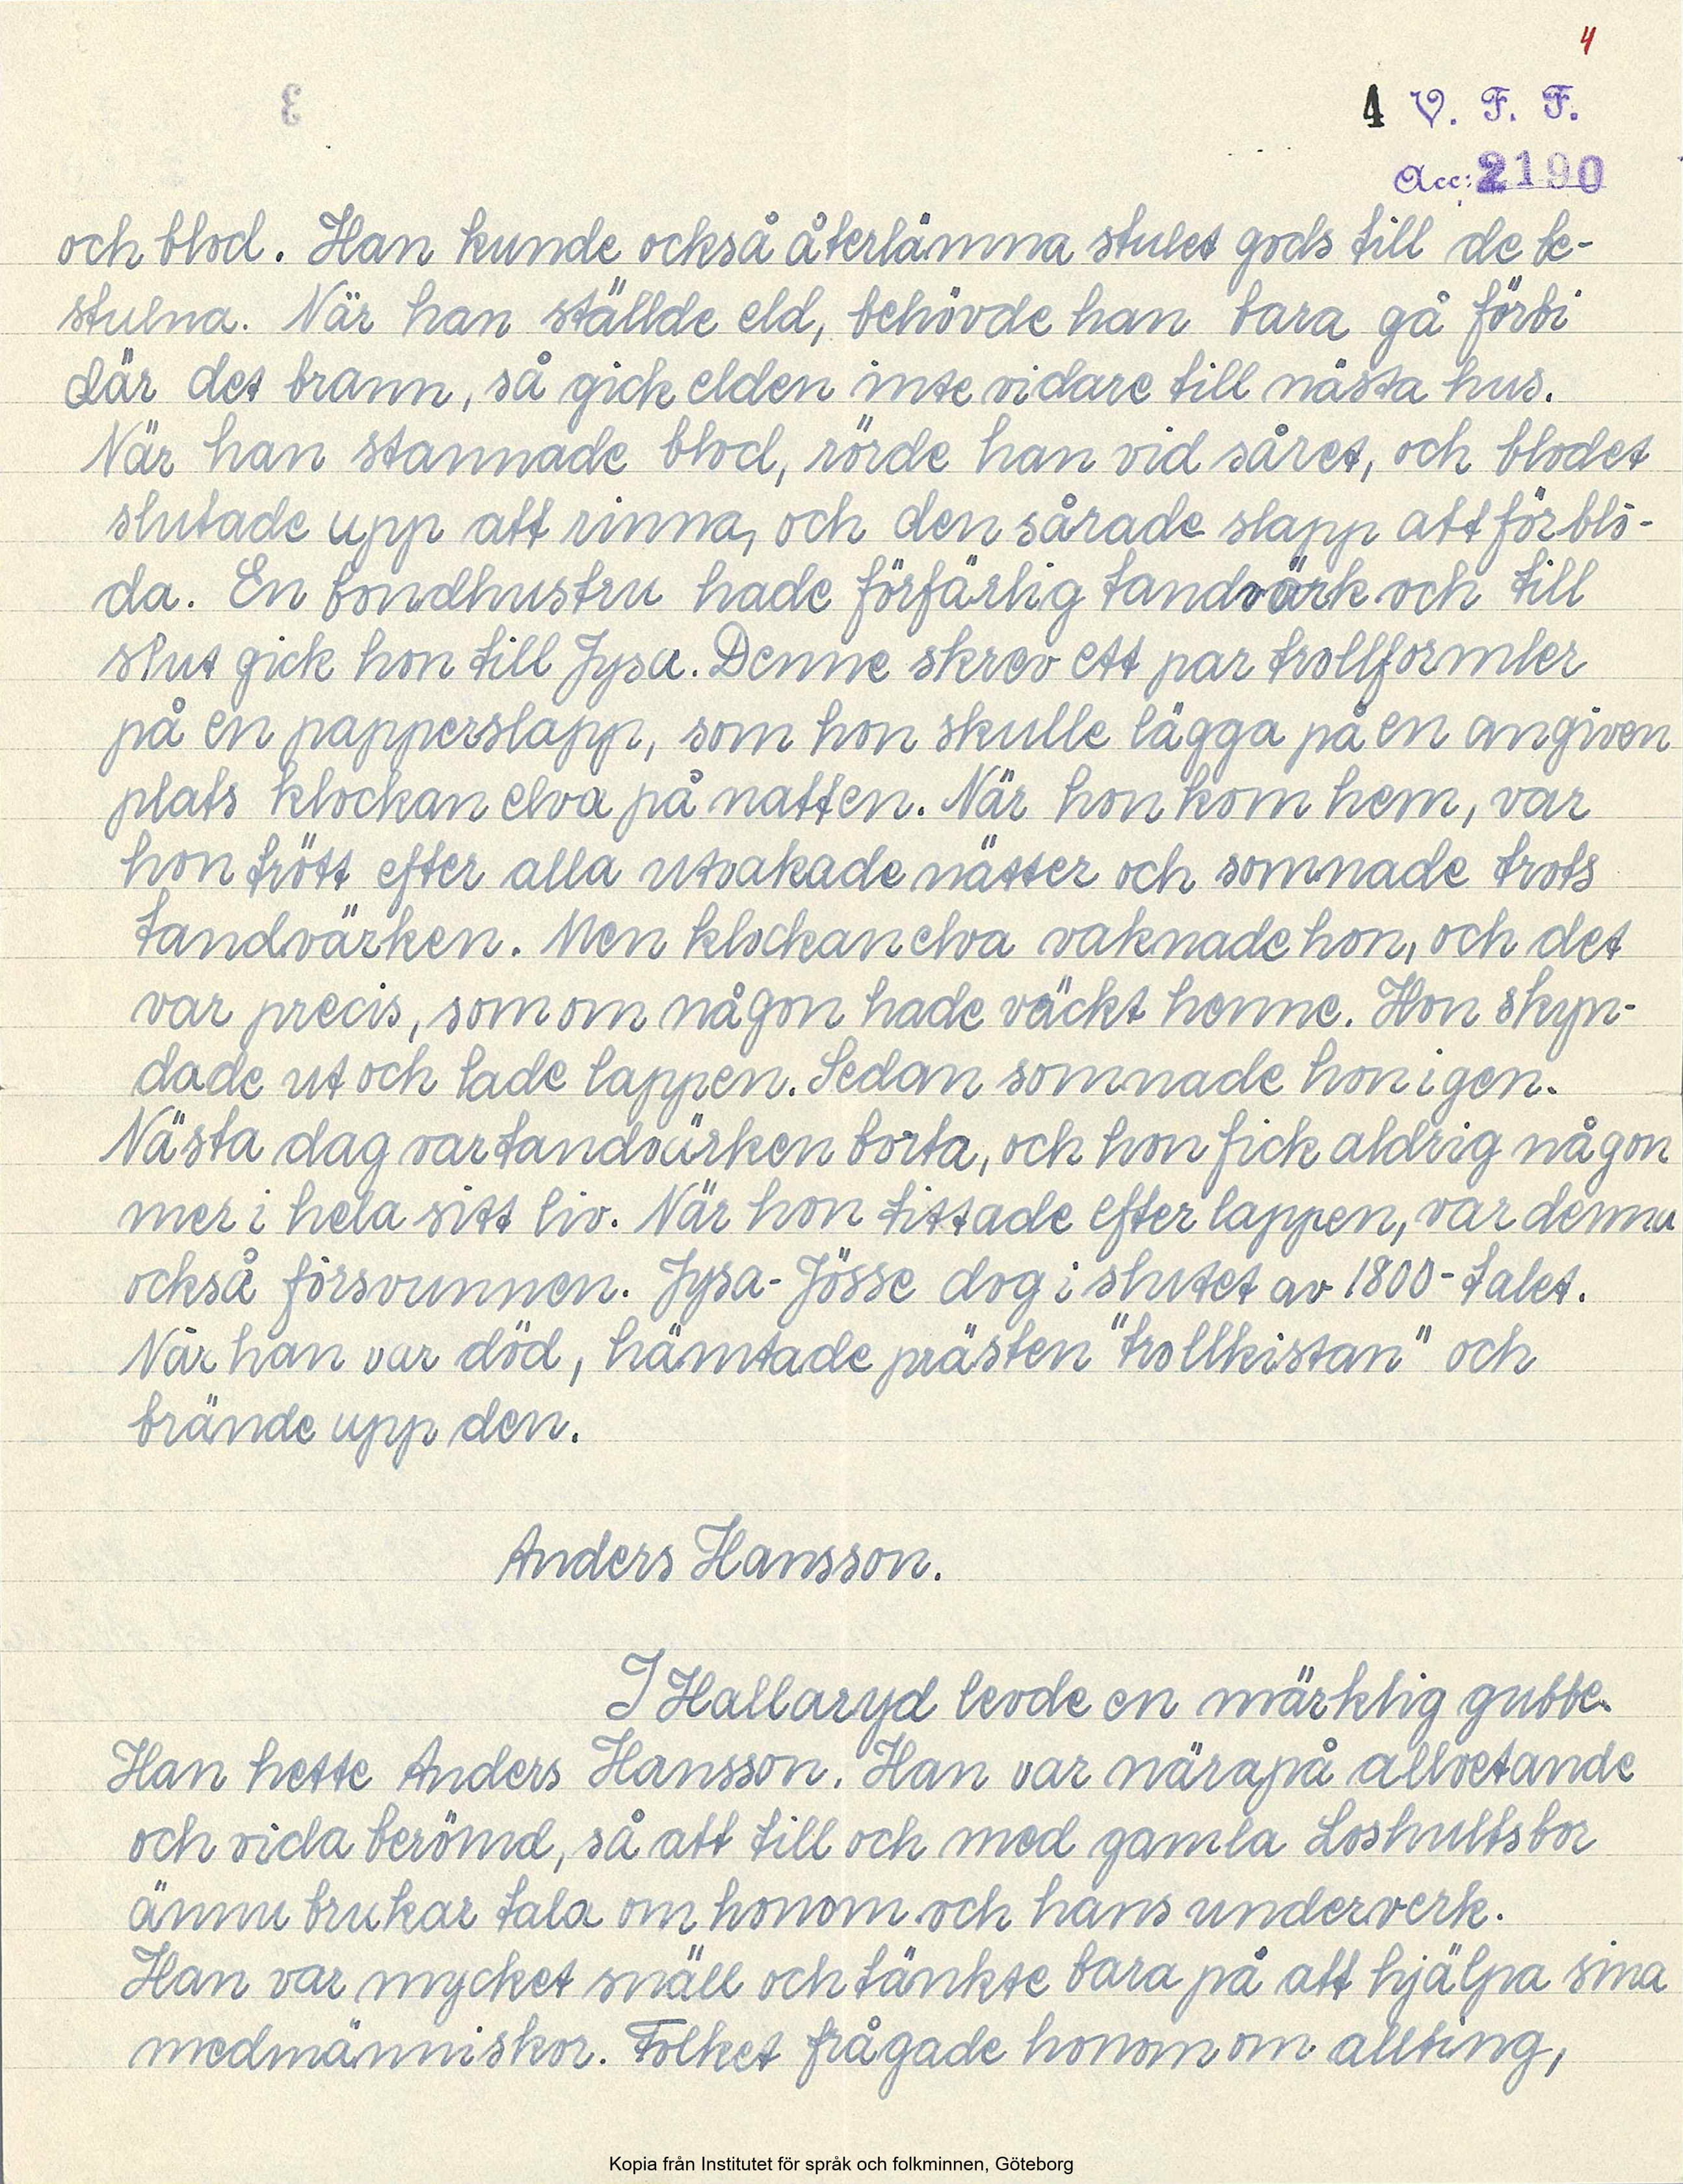 4
3
4 V. F. F.
Acc: 2190
och blod. Han kunde också återlämna stulet gods till de be-
stulna. När han ställde eld, behövde han bara gå förbi
där det brann, så gick elden inte vidare till nästa hus.
När han stannade blod, rörde han vid såret, och blodet
slutade upp att rinna, och den sårade slapp att förblö-
da. En bondhustru hade förfärlig tandvärk och till
slut gick hon till Jysa. Denne skrev ett par trollformler
på en papperslapp, som hon skulle lägga på en angiven
plats klockan elva på natten. När hon kom hem, var
hon trött efter alla utvakade nätter och somnade trots
tandvärken. Men klockan elva vaknade hon, och det
var precis, som om någon hade väckt henne. Hon skyn-
dade ut och lade lappen. Sedan somnade hon igen.
Nästa dag var tandvärken borta, och hon fick aldrig någon
mer i hela sitt liv. När hon tittade efter lappen, var denna
också försvunnen. Jysa-Jösse dog i slutet av 1800-talet.
När han var död, hämtade prästen "trollkistan" och
brände upp den.
Anders Hansson.
I Hallaryd levde en märklig gubbe.
Han hette Anders Hansson. Han var närapå allvetande
och vida berömd, så att till och med gamla Loshultsbor
ännu brukar tala om honom och hans underverk.
Han var mycket snäll och tänkte bara på att hjälpa sina
medmänniskor. Folket frågade honom om allting,
Kopia från Institutet för språk och folkminnen, Göteborg